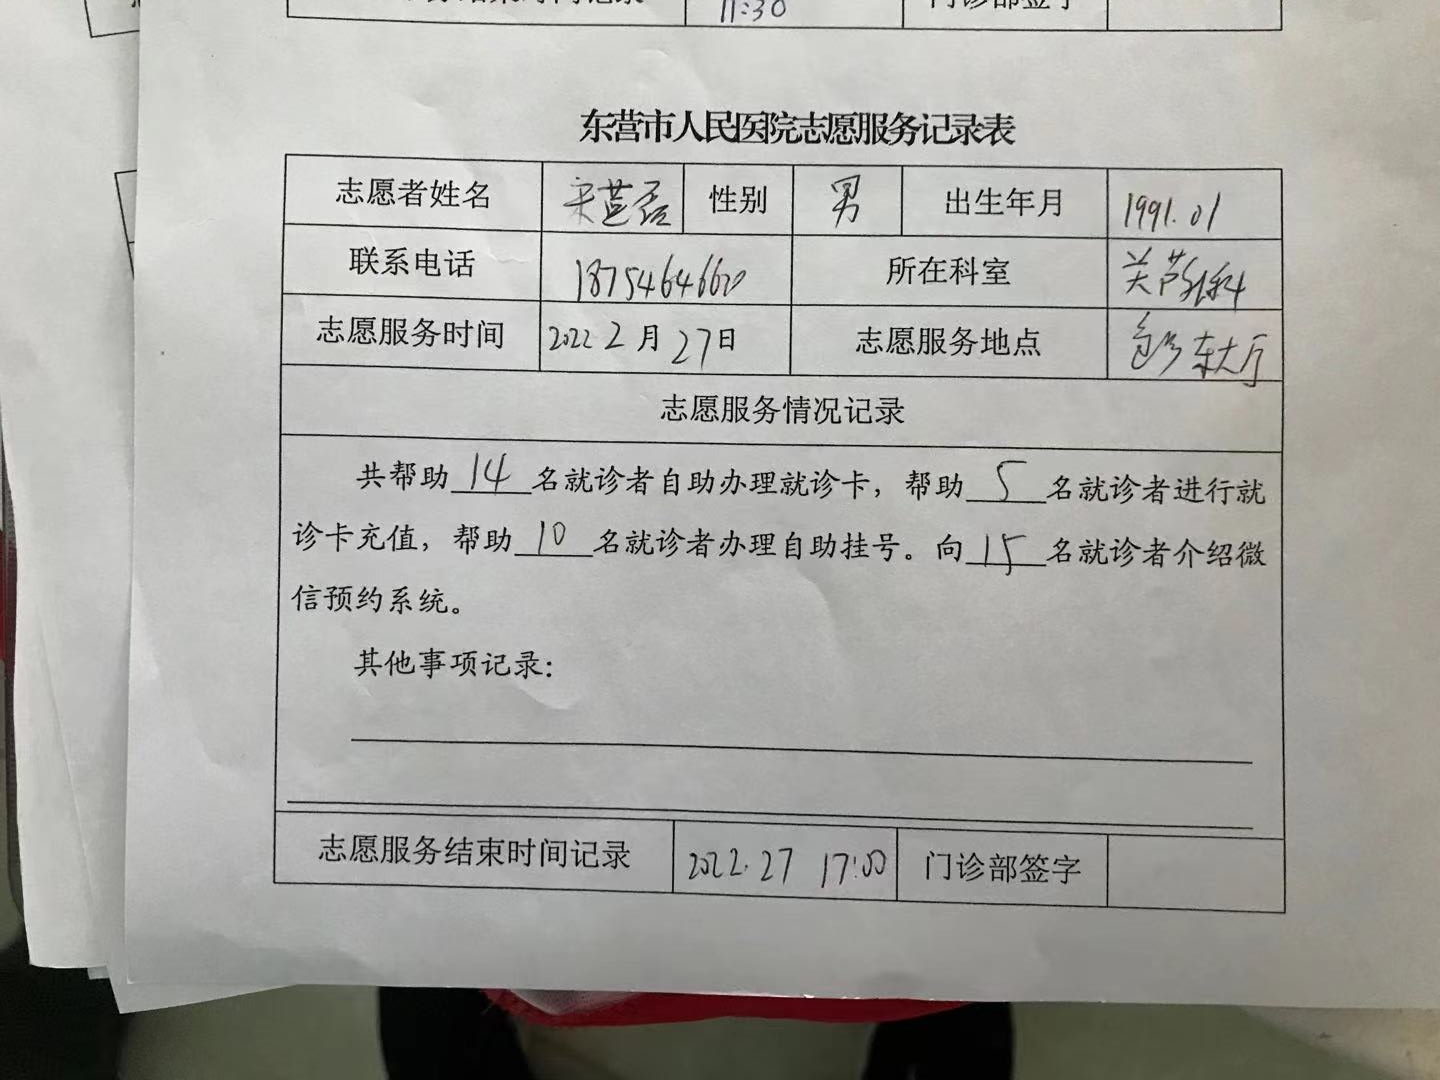 11:30
东营市人民医院志愿服务记录表
志愿者姓名 性别 男 出生年月 1991.01
联系电话 18754646620 所在科室 关节外科
志愿服务时间 2022 2月27日 志愿服务地点 东大厅
志愿服务情况记录
共帮助14名就诊者自助办理就诊卡，帮助5名就诊者进行就
诊卡充值，帮助10名就诊者办理自助挂号。向15名就诊者介绍微
信预约系统。
其他事项记录：
志愿服务结束时间记录 2022.27 17:00 门诊部签字